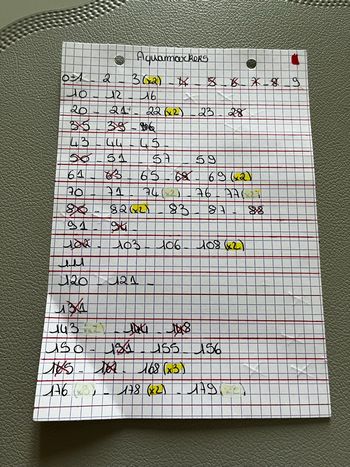 Aquamarkers
0 - 1 - 2 - 3 (x2) - 4 - 5 - 6 - 7 - 8 - 9
10 - 12 - 16
20 - 21 - 22 (x2) - 23 - 28
35 - 39 -
43 - 44 - 45 -
50 - 51 - 57 - 59
61 - 63 - 65 - 68 - 69 (x2)
70 - 71 - 74 (x2) - 76 - 77
80 - 82 (x2) - 83 - 87 - 88
91 - 94 -
102 - 103 - 106 - 108 (x2)
111
120 - 121 -
131
143 - 144 - 148
150 - 151 - 155 - 156
165 - 167 - 168 (x3)
176 (x3) - 178 (x2) - 179